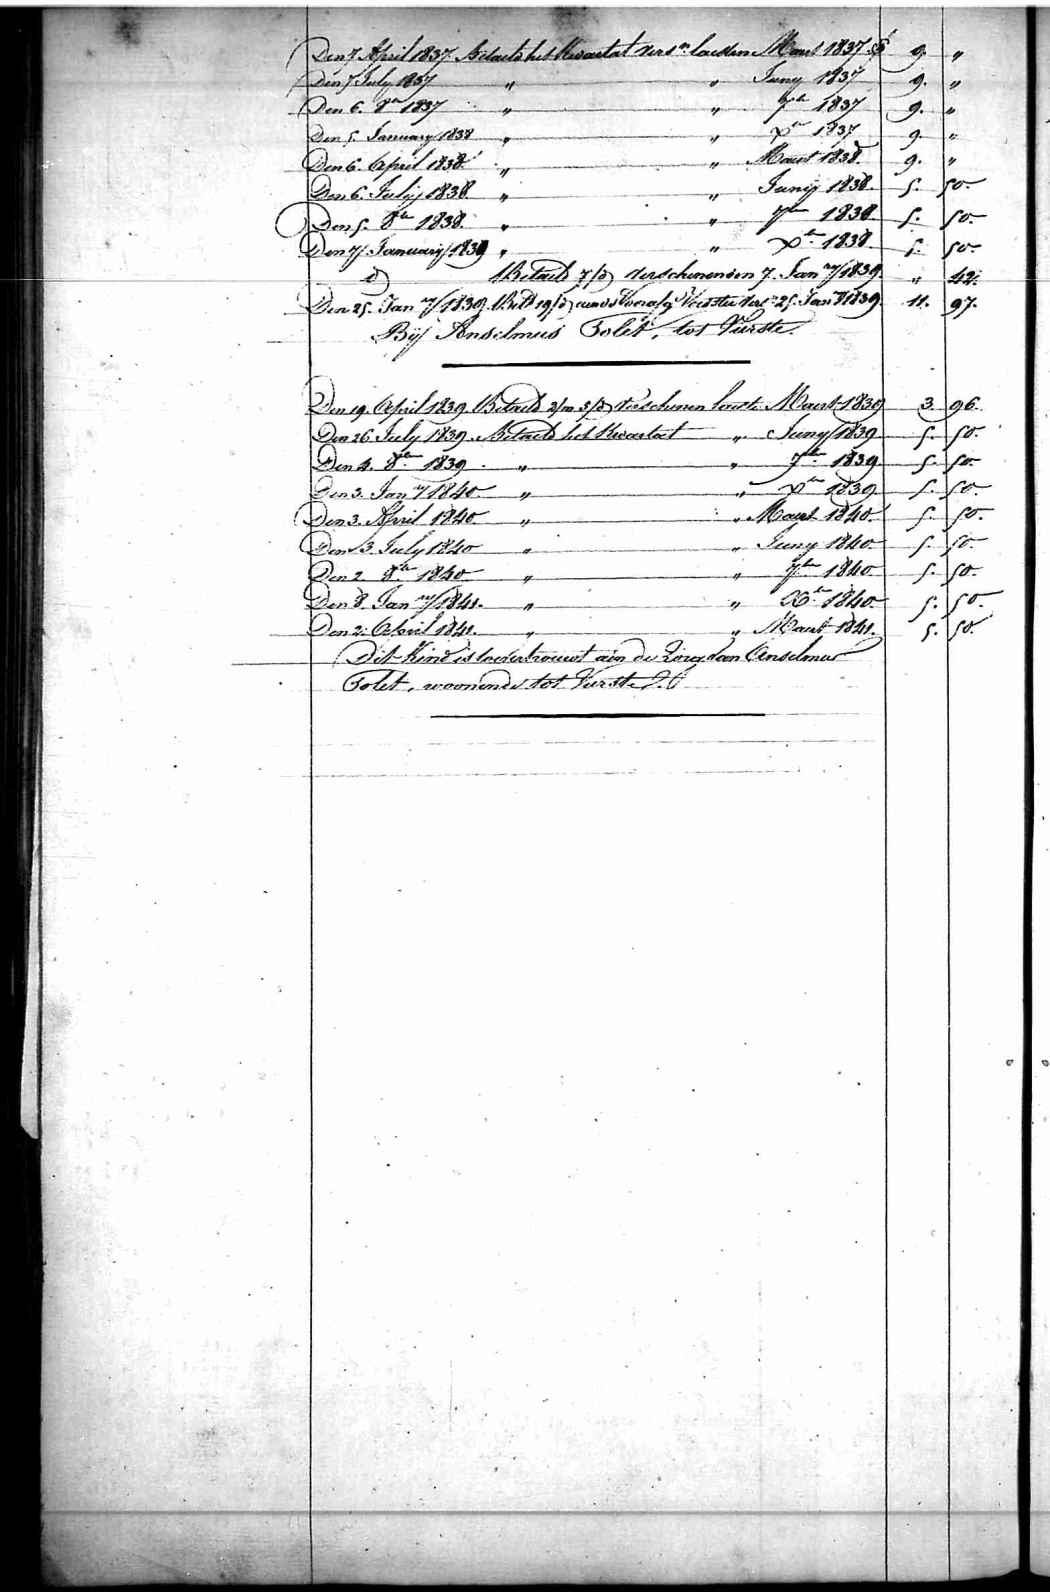 Den 7 April 1837 Betaeld het Kwartaal vers.n laesten Maert 1837 f 9. "
Den 7 July 1837 " " Juny 1837 9. "
Den 6. 8.er 1837 " " 7.ber 1837 9. "
Den 5. January 1838 " " X.er 1837 9. "
Den 6. April 1838. " " Maert 1838. 9. "
Den 6. July 1838. " " Juny 1838. 5. 50.
Den 5. 8.er 1838. " " 7.ber 1838. 5. 50.
Den 7. January 1839 " " X.er 1838. 5. 50.
d) Betaeld 7/d verschenen den 7. Jan.ry 1839. " 42.
Den 25. Jan.ry 1839. 19/d vers.n 25. Jan.ry 1839. 11. 97.
Bij Anselmus Folet, tot Vurste.
Den 19. April 1839. Betaeld 2/m 5/d verschenen laeste Maert 1839 3. 96.
Den 26. July 1839. Betaeld het Kwartaet " Juny 1839 5. 50.
Den 4. 8.er 1839. " " 7.ber 1839 5. 50.
Den 3. Jan.ry 1840. " " X.er 1839 5. 50.
Den 3. April 1840. " " Maert 1840. 5. 50.
Den 3. July 1840 " " Juny 1840. 5. 50.
Den 2. 8.er 1840. " " 7.ber 1840. 5. 50.
Den 8. Jan.ry 1841. " " X.er 1840. 5. 50.
Den 2. April 1841. " " Maert 1841. 5. 50.
Dit Kind is toevertrouwt aen de Zorg van Anselmus
Folet, woonende tot Vurste